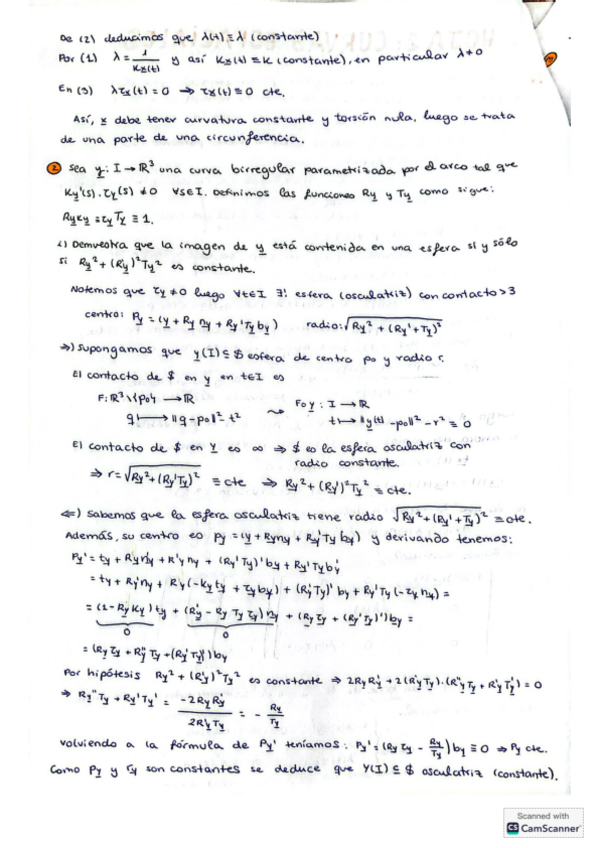 De (2) deducimos que λ(t) ≡ λ (constante)
Por (1) λ = 1/Kx(t) y así Kx(t) ≡ K (constante), en particular λ ≠ 0
En (3) λτx(t) = 0 → τx(t) ≡ 0 cte.
Así, x debe tener curvatura constante y torsión nula, luego se trata
de una parte de una circunferencia.
2 Sea y: I → ℝ³ una curva birregular parametrizada por el arco tal que
Ky'(s) · τy(s) ≠ 0 ∀s∈I. Definimos las funciones Ry y Ty como sigue:
Ryκy ≡ τy Ty ≡ 1.
Demuestra que la imagen de y está contenida en una esfera si y sólo
si Ry² + (Ry')² Ty² es constante.
Notemos que τy ≠ 0 luego ∀t∈I ∃! esfera (osculatriz) con contacto > 3
centro: Py = (y + Ry ny + Ry' Ty by) radio: √(Ry² + (Ry' + Ty)²)
⇒) Supongamos que y(I) ⊆ $ esfera de centro po y radio r.
El contacto de $ en y en t∈I es
F: ℝ³\{po} → ℝ Fo y : I → ℝ
q ↦ ||q - po||² - t² ⇝ t ↦ ||y(t) - po||² - r² ≡ 0
El contacto de $ en y es ∞ ⇒ $ es la esfera osculatriz con
radio constante.
⇒ r = √(Ry² + (Ry' Ty)²) ≡ cte ⇒ Ry² + (Ry')² Ty² ≡ cte.
⇐) Sabemos que la esfera osculatriz tiene radio √(Ry² + (Ry' + Ty)²) ≡ cte.
Además, su centro es Py = (y + Ryny + Ry' Ty by) y derivando tenemos:
Py' = ty + Ryny' + R'y ny + (Ry' Ty)' by + Ry' Ty by'
= ty + Ry' ny + Ry (-Ky ty + τy by) + (Ry' Ty)' by + Ry' Ty (-τy ny) =
= (1 - Ry Ky) ty + (Ry' - Ry' Ty τy) ny + (Ry τy + (Ry' Ty)') by =
0 0
= (Ry τy + Ry'' Ty + (Ry' Ty')) by
Por hipótesis Ry² + (Ry')² Ty² es constante ⇒ 2Ry Ry' + 2(Ry' Ty) · (Ry'' Ty + Ry' Ty') = 0
⇒ Ry'' Ty + Ry' Ty' = -2Ry Ry' / 2Ry' Ty = - Ry/Ty
Volviendo a la fórmula de Py' teníamos: Py' = (Ry τy - Ry/Ty) by ≡ 0 ⇒ Py cte.
Como Py y ry son constantes se deduce que y(I) ⊆ $ osculatriz (constante).
Scanned with
CS CamScanner